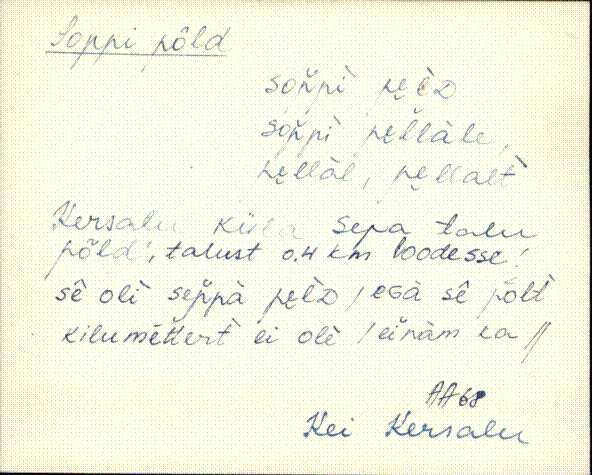 Soppi põld
sop̆pì pe̮l̀D
sop̆pì pe̮llàle,
pe̮llàl, pe̮llalt̀
Kersalu küla Sepa talu
põld, talust 0.4 km loodesse.
sê olì sep̆pà pe̮l̀D / egà sê põlt̀
kilumēt̆tert̀ ei olè / eìnàm ka //
AA68
Kei Kersalu